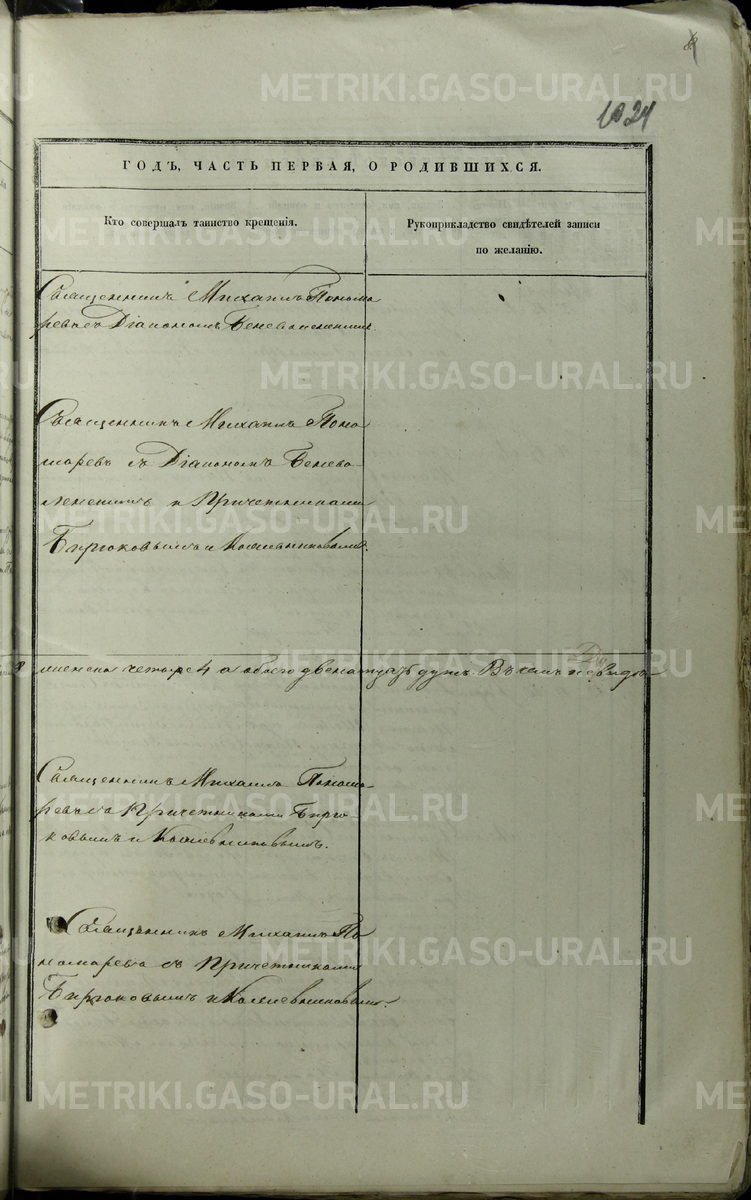 1024
ГОДЪ, ЧАСТЬ ПЕРВАЯ, О РОДИВШИХСЯ.
Кто совершалъ таинство крещенія.
Рукоприкладство свидѣтелей записи
по желанію.
Священникъ Михаилъ Понома
ревъ съ Діакономъ Беневоленскимъ
Священникъ Михаилъ Поно
маревъ съ Діакономъ Бенево
ленскимъ и Причетниками
Бирюковымъ и Кожевниковымъ.
8
женска четыре 4 а обоего двенатцать душъ. Въ чемъ и
Священникъ Михаилъ Понома
ревъ съ Причетниками Бирю
ковымъ и Кожевниковымъ.
Священникъ Михаилъ По
номаревъ съ Причетниками
Бирюковымъ и Кожевниковымъ.
METRIKI.GASO-URAL.RU